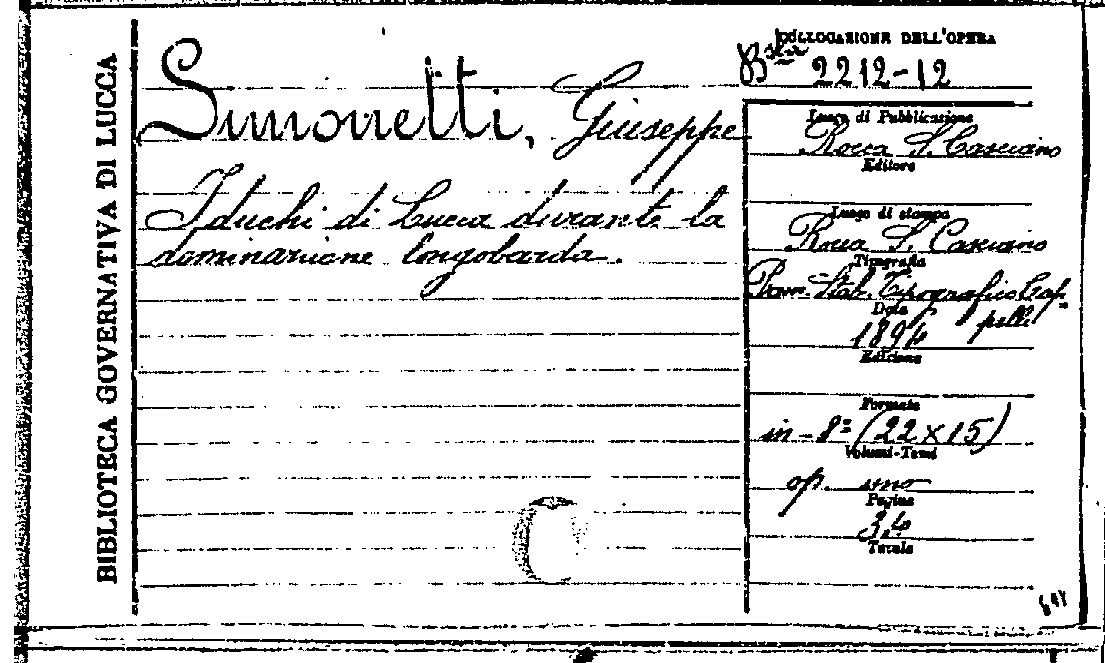 BIBLIOTECA GOVERNATIVA DI LUCCA
COLLOCAZIONE DELL'OPERA
2212-12
Simonetti, Giuseppe
I duchi di Lucca durante la
dominazione longobarda.
Luogo di Pubblicazione
Rocca S. Casciano
Editore
Luogo di stampa
Rocca S. Casciano
Tipografia
Prem. Stab. Tipografico Cap-
pelli
Data
Edizione
Formato
in-8º (22 x 15)
Volumi-Tomi
op. uno
Pagine
Tavole